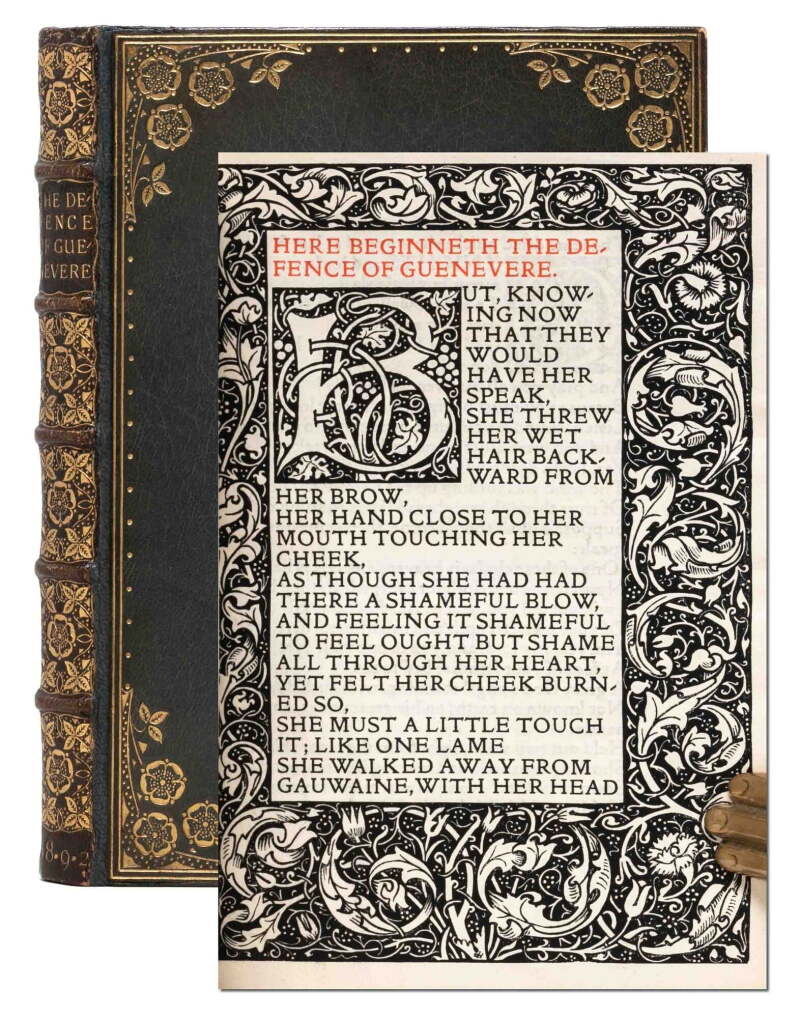 THE DE-
FENCE
OF GUE-
NEVERE
8·9·2
HERE BEGINNETH THE DE-
FENCE OF GUENEVERE.
BUT, KNOW-
ING NOW
THAT THEY
WOULD
HAVE HER
SPEAK,
SHE THREW
HER WET
HAIR BACK-
WARD FROM
HER BROW,
HER HAND CLOSE TO HER
MOUTH TOUCHING HER
CHEEK,
AS THOUGH SHE HAD HAD
THERE A SHAMEFUL BLOW,
AND FEELING IT SHAMEFUL
TO FEEL OUGHT BUT SHAME
ALL THROUGH HER HEART,
YET FELT HER CHEEK BURN-
ED SO,
SHE MUST A LITTLE TOUCH
IT; LIKE ONE LAME
SHE WALKED AWAY FROM
GAUWAINE, WITH HER HEAD